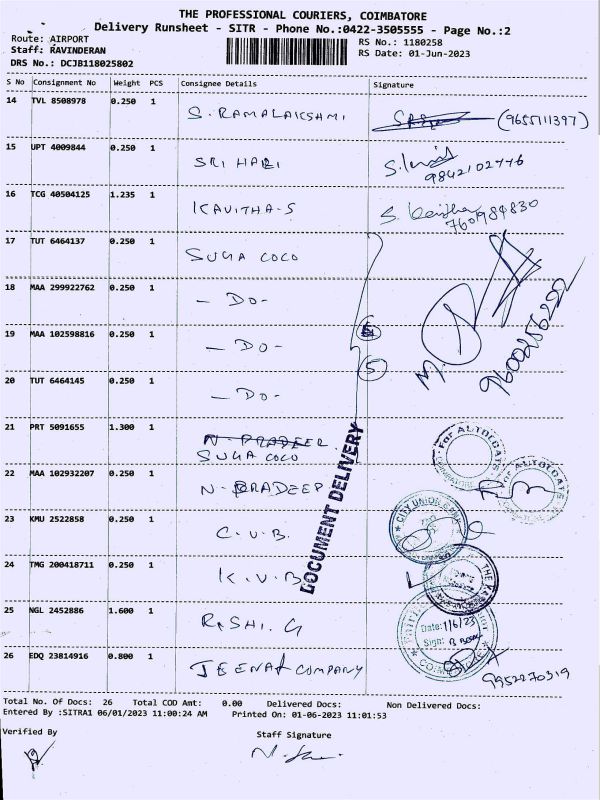 THE PROFESSIONAL COURIERS, COIMBATORE
Delivery Runsheet - SITR - Phone No.:0422-3505555 - Page No.:2
Route: AIRPORT RS No.: 1180258
Staff: RAVINDERAN RS Date: 01-Jun-2023
DRS No.: DCJB118025802
S No Consignment No Weight PCS Consignee Details Signature
14 TVL 8508978 0.250 1 S. RAMALAKSHMI (9655111397)
15 UPT 4009844 0.250 1 SRI HARI 9842102776
16 TCG 40504125 1.235 1 KAVITHA-S
17 TUT 6464137 0.250 1 SUGA COCO
18 MAA 299922762 0.250 1 - DO -
19 MAA 102598816 0.250 1 - DO -
5
9600256292
20 TUT 6464145 0.250 1 - DO -
21 PRT 5091655 1.300 1 N. PRADEEP
SUGA COCO
For AUTOCOATS
COIMBATORE
22 MAA 102932207 0.250 1 N. PRADEEP
DOCUMENT DELIVERY
For AUTOCOATS
23 KMU 2522858 0.250 1 C.U.B.
CITY UNION BANK
24 TMG 200418711 0.250 1 K.V.B
25 NGL 2452886 1.600 1 RISHI. G
Date: 1/6/23
Sign:
26 EDQ 23814916 0.800 1 JEENA & COMPANY
9952270319
Total No. Of Docs: 26 Total COD Amt: 0.00 Delivered Docs: Non Delivered Docs:
Entered By :SITRA1 06/01/2023 11:00:24 AM Printed On: 01-06-2023 11:01:53
Verified By Staff Signature